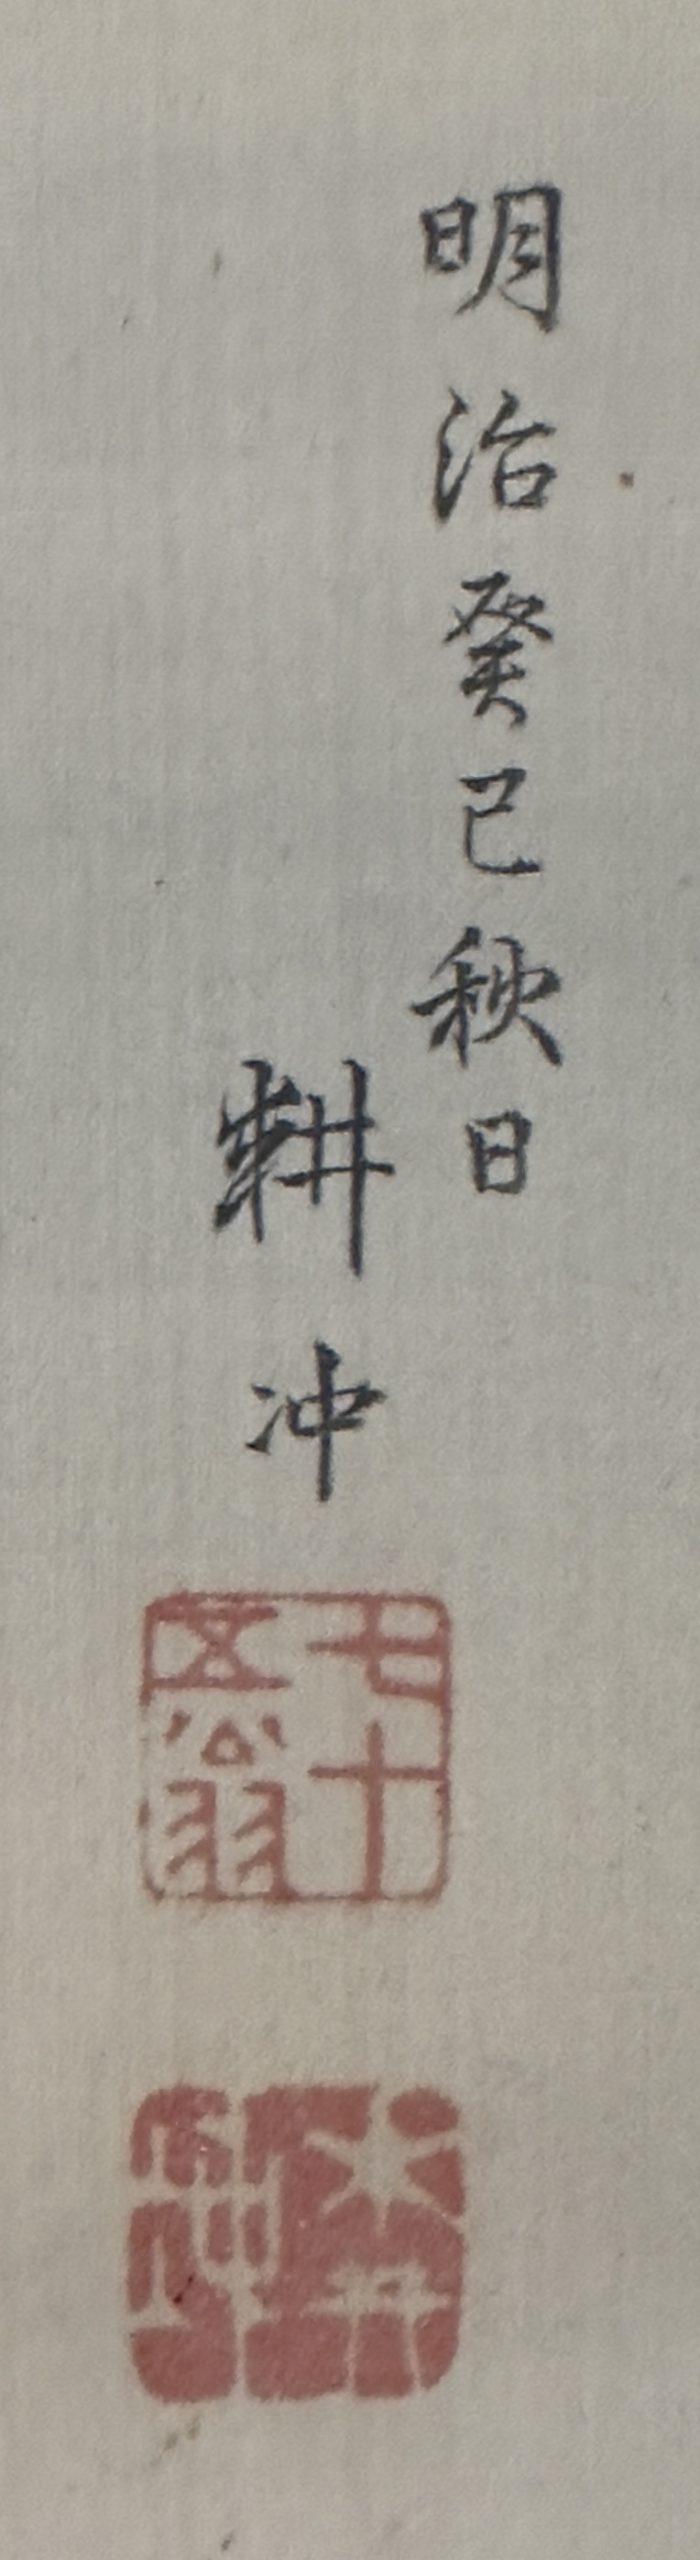 明治癸巳秋日
耕冲
七十
五翁